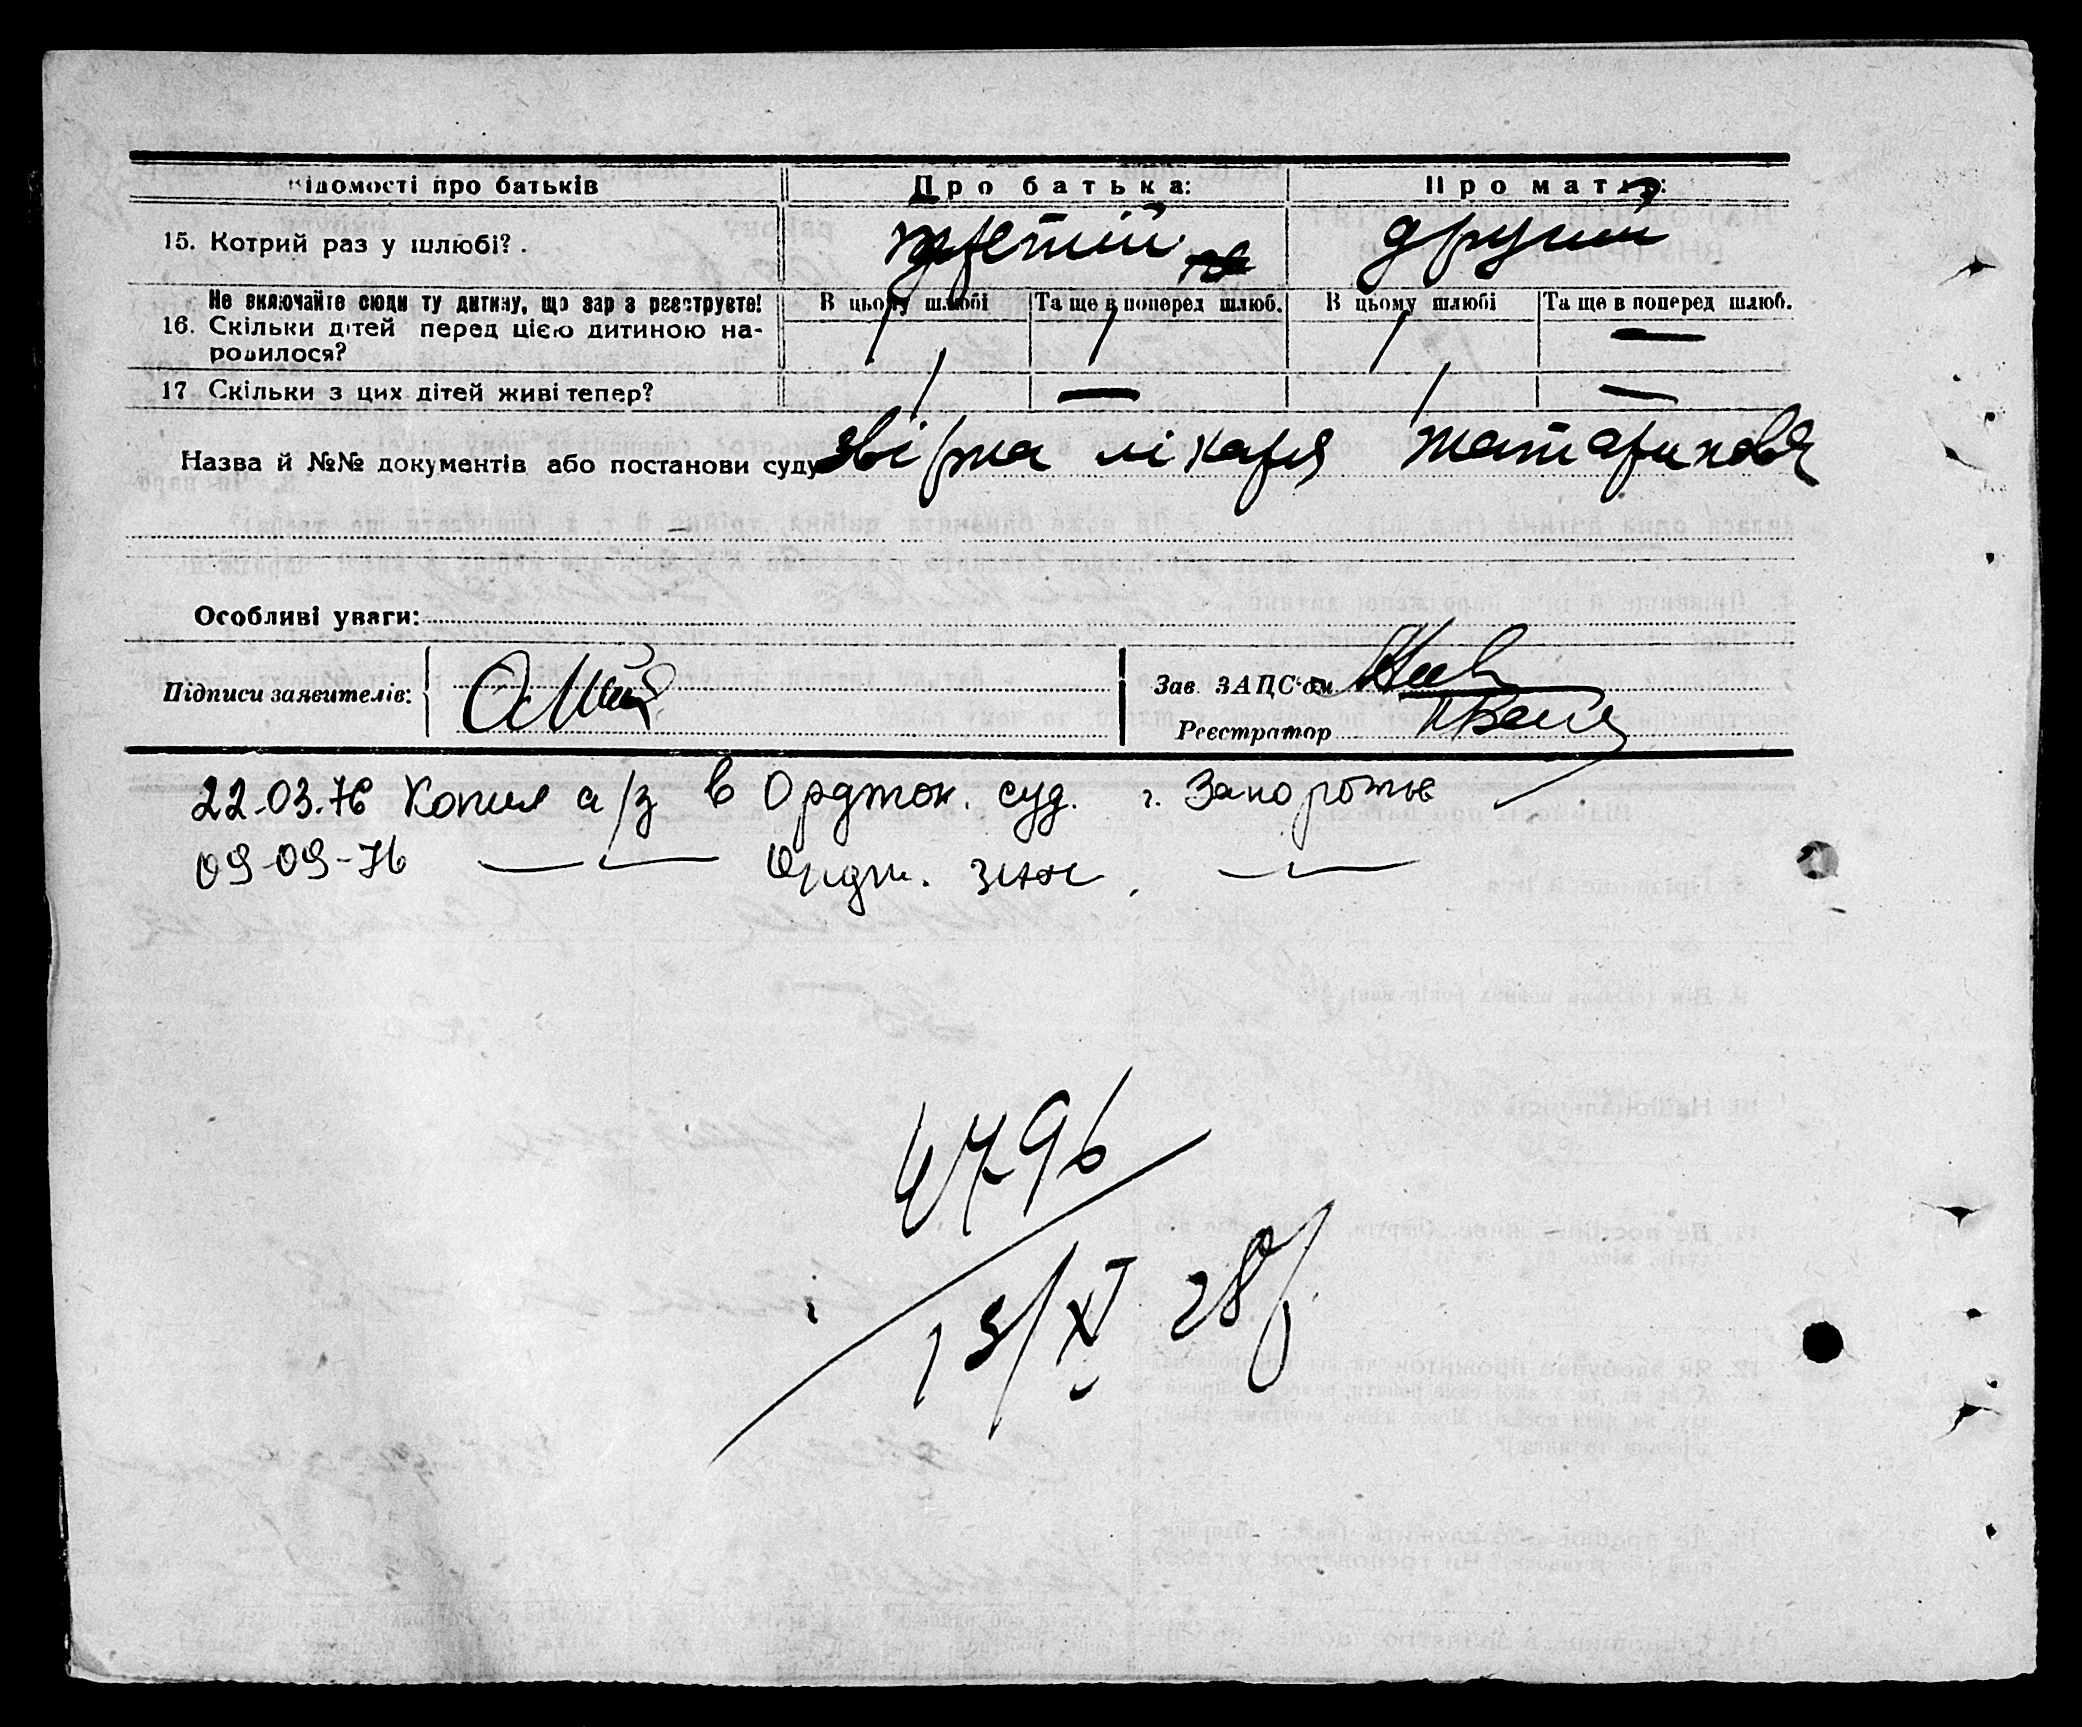 Відомості про батьків Про батька: Про матір:
15. Котрий раз у шлюбі? третій другий
Не включайте сюди ту дитину, що зараз реєструєте! В цьому шлюбі Та ще в поперед шлюб. В цьому шлюбі Та ще в поперед шлюб.
16. Скільки дітей перед цією дитиною на-
родилося? 1 1 1 —
17 Скільки з цих дітей живі тепер? 1 — 1 —
Назва й №№ документів або постанови суду звірка лікаря
Особливі уваги:
Підписи заявителів: Зав. ЗАЦС'ом
Реєстратор
22.03.76 Копия а/з в Орджон. суд. г. Запорожье
09-09-76 — — Ордж. загс. — —
4796
13/XI 28 р